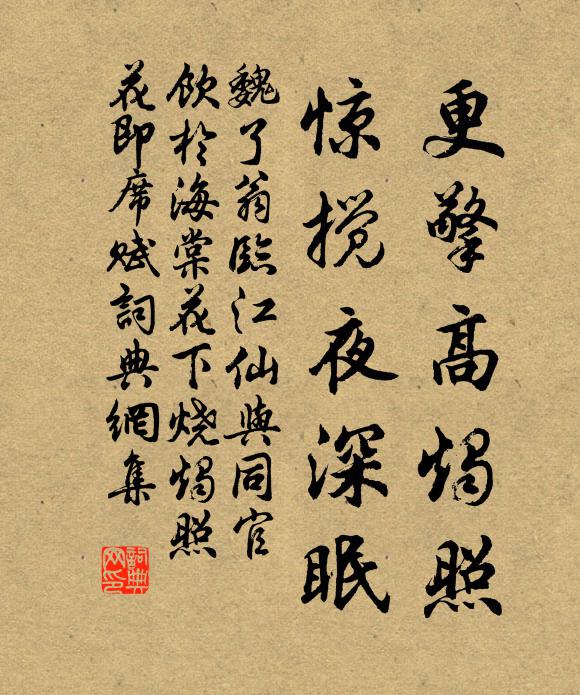 更擎高烛照
惊搅夜深眠
魏了翁臨江仙與同官
飲於海棠花下烧烛照
花即席赋詞典網集
詞典
网印